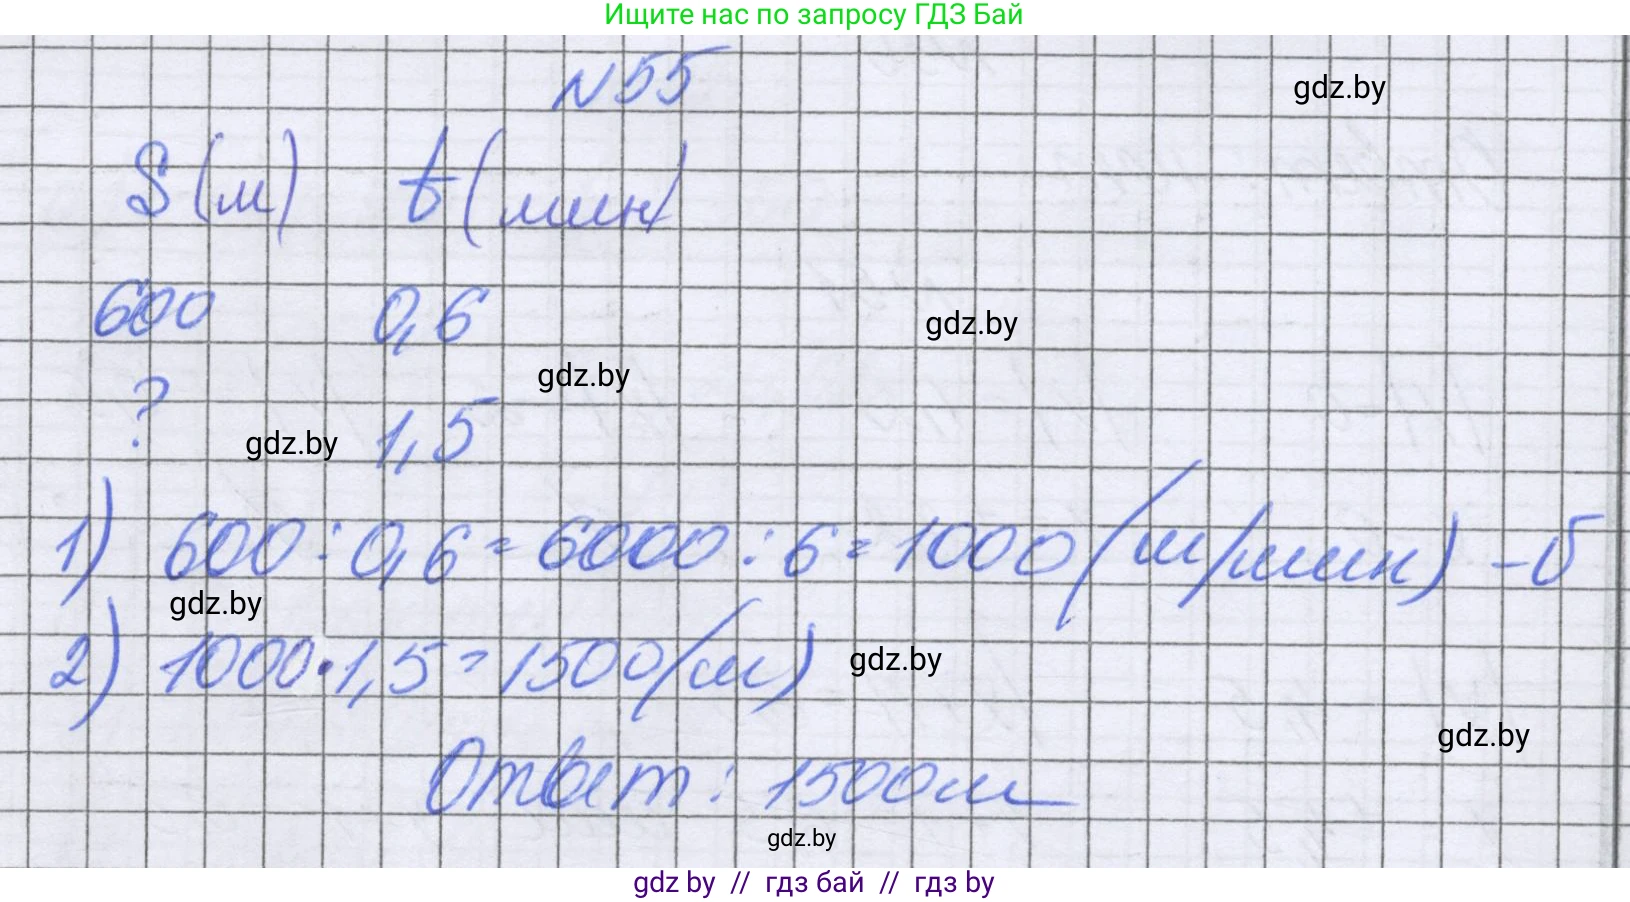 Ищите нас по запросу ГДЗ Бай
N55
gdz.by
S (м) t (мин)
600 0,6
gdz.by
gdz.by
? 1,5
gdz.by
1) 600 : 0,6 = 6000 : 6 = 1000 (м/мин) - υ
gdz.by
2) 1000 · 1,5 = 1500 (м)
gdz.by
gdz.by
Ответ: 1500 м
gdz.by
gdz by // гдз бай // гдз by